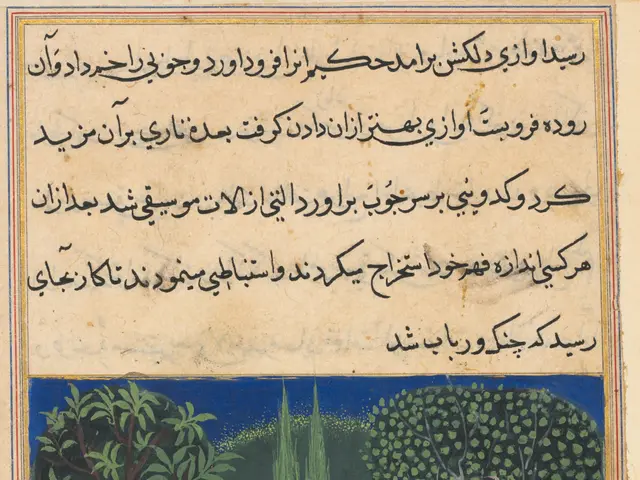 رسید اوازي دلکش برامد حکیم انرا فرود اورد و چوبي را خم داد و آن
روده فرو بست اوازي بهتر ازان دادن کرفت بعده تاري بر آن مزید
کرد و کدویئي بر سر چوب براورد التي از الات موسیقي شد بعد ازان
هر کسي اندازه فهم خود استخراج میکردند و استنباطي مینمودند تا کار بجآي
رسید که چنک و رباب شد